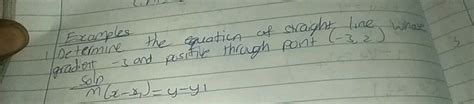 Examples
1 Determine the equation of straight line whose
gradient -3 and positive through point (-3, 2)
Soln
M(x-x1) = y-y1